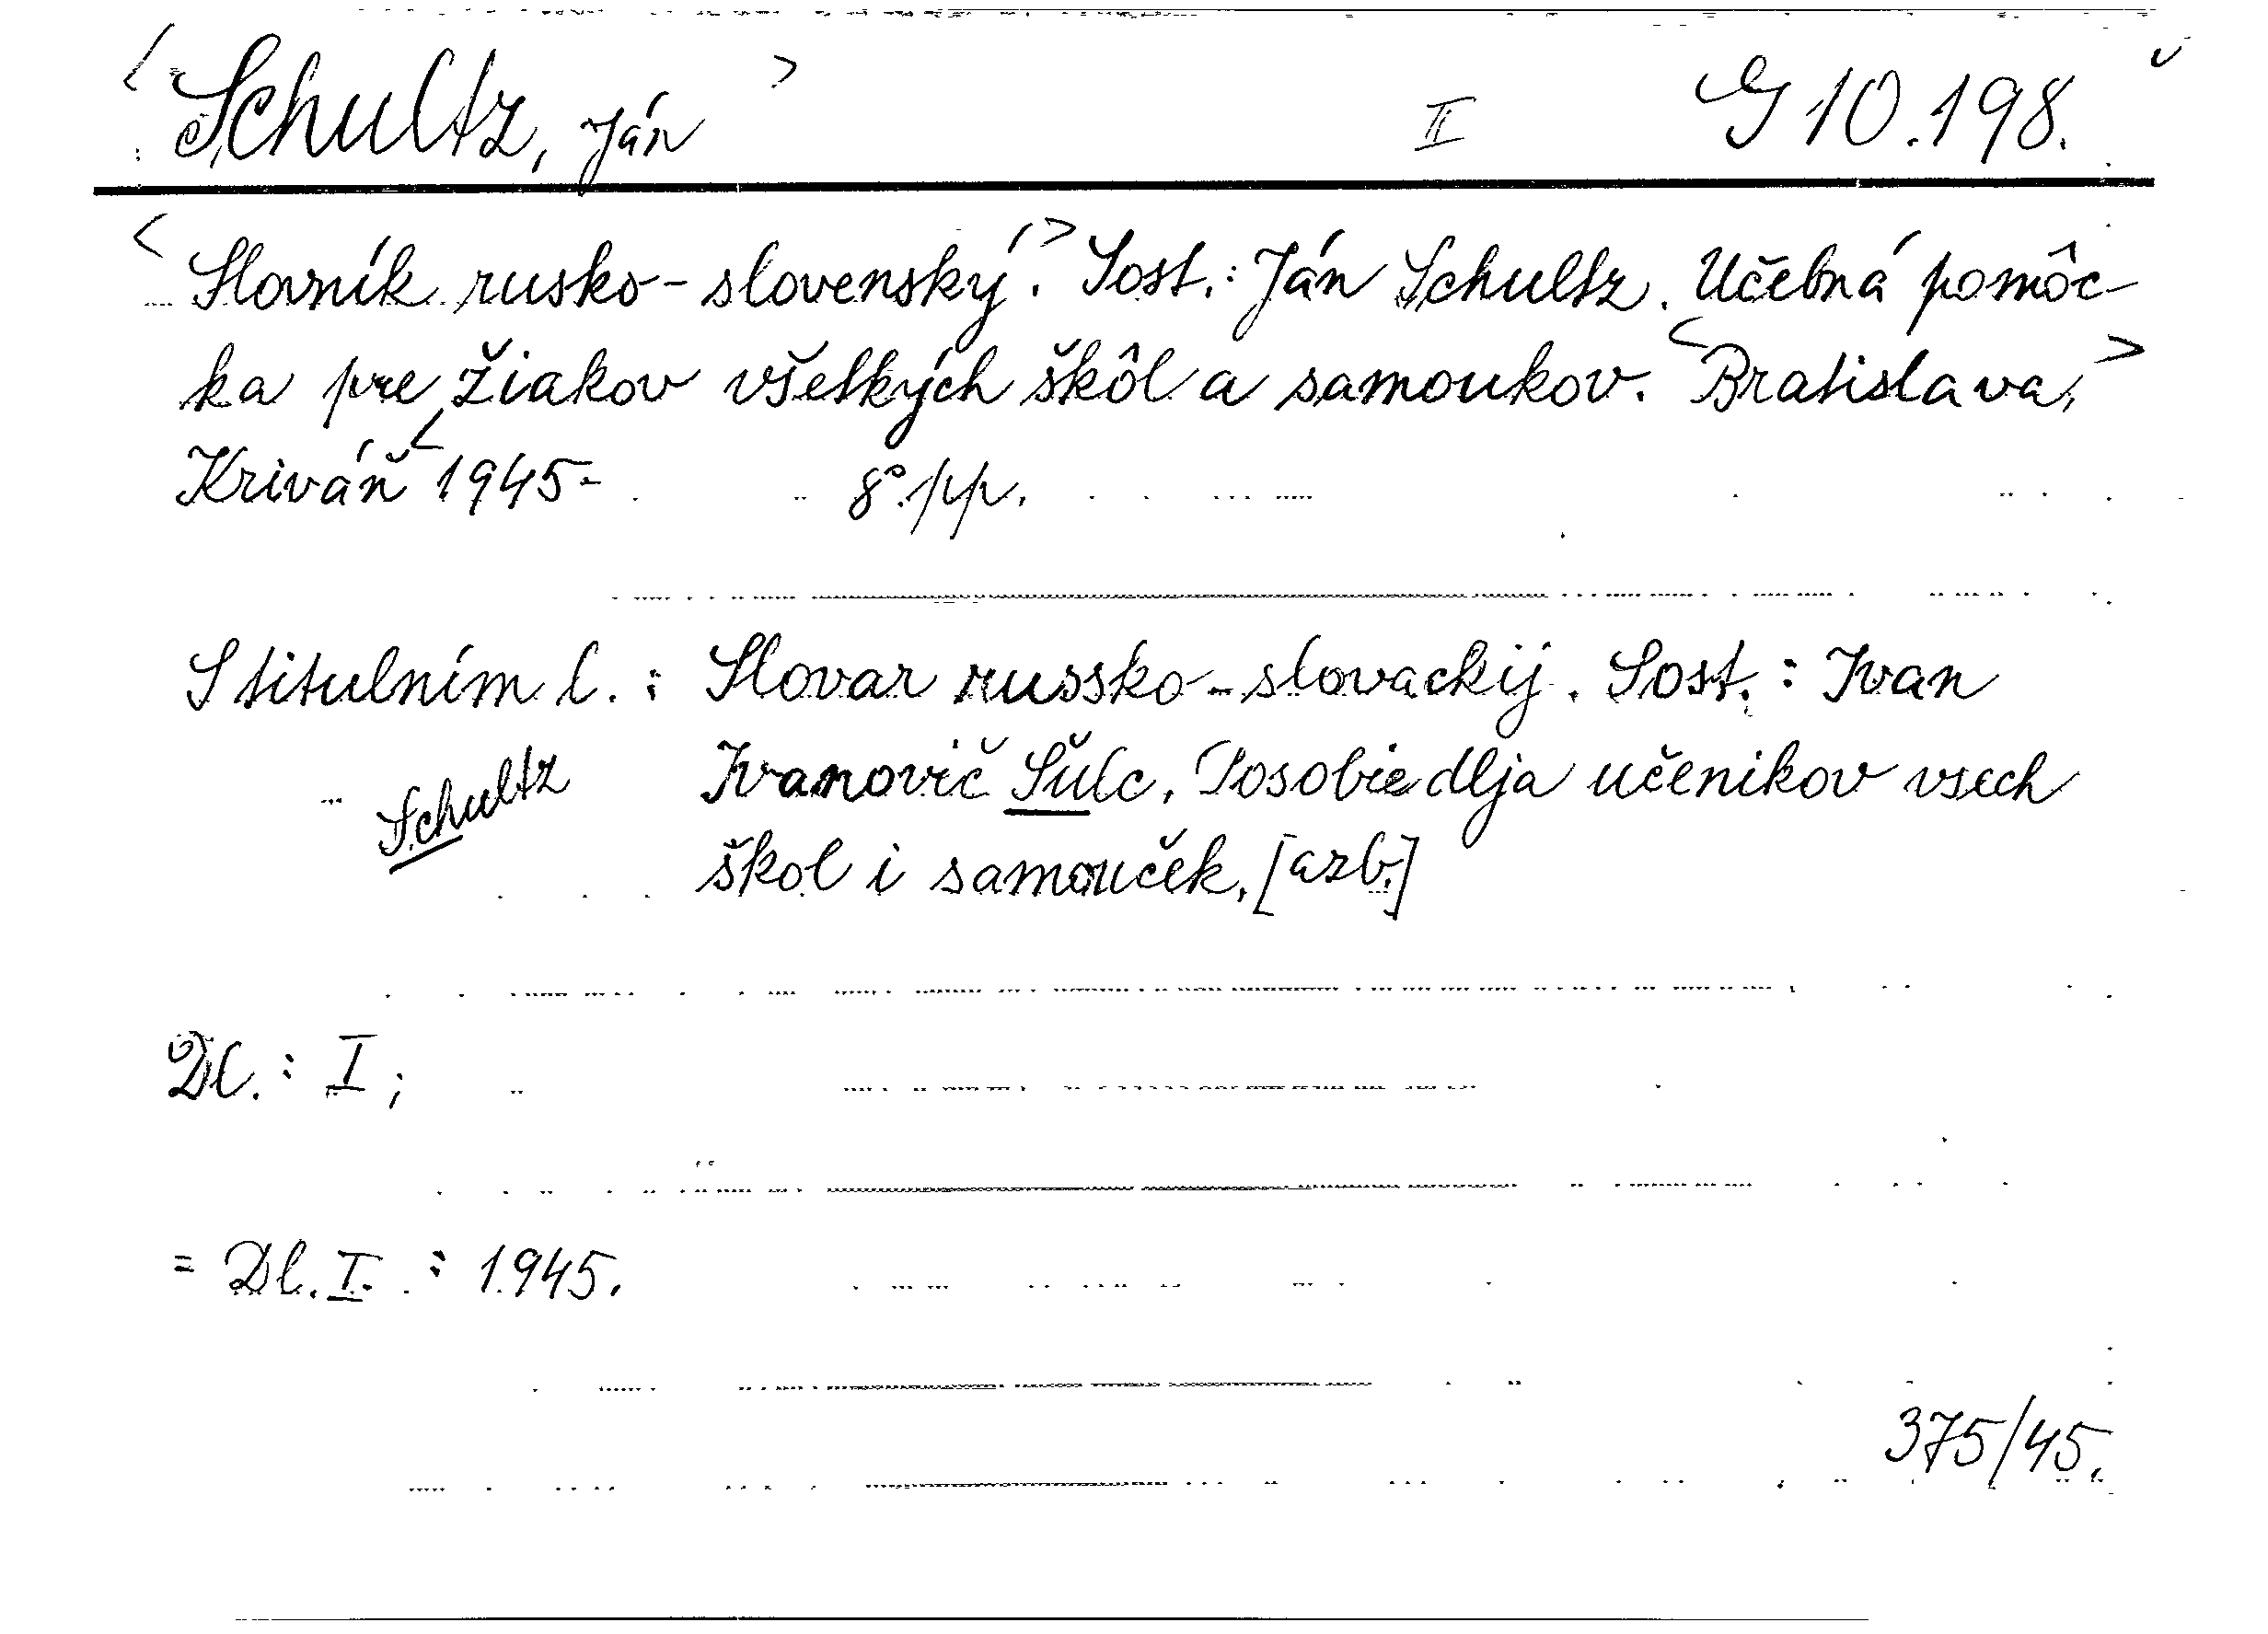 <Schultz, Ján> II G 10.198.
<Slovník rusko-slovenský.> Sost.: Ján Schultz. Učebná pomôc-
ka pre žiakov všetkých škôl a samoukov. <Bratislava,>
Kriváň <1945- 8°. pp.
S titulním l.: Slovar russko-slovackij. Sost.: Ivan
Ivanovič Šulc. Posobie dlja učenikov vsech
Schultz
škol i samouček. [azb.]
Dl.: I;
= Dl. I. : 1945.
375/45.